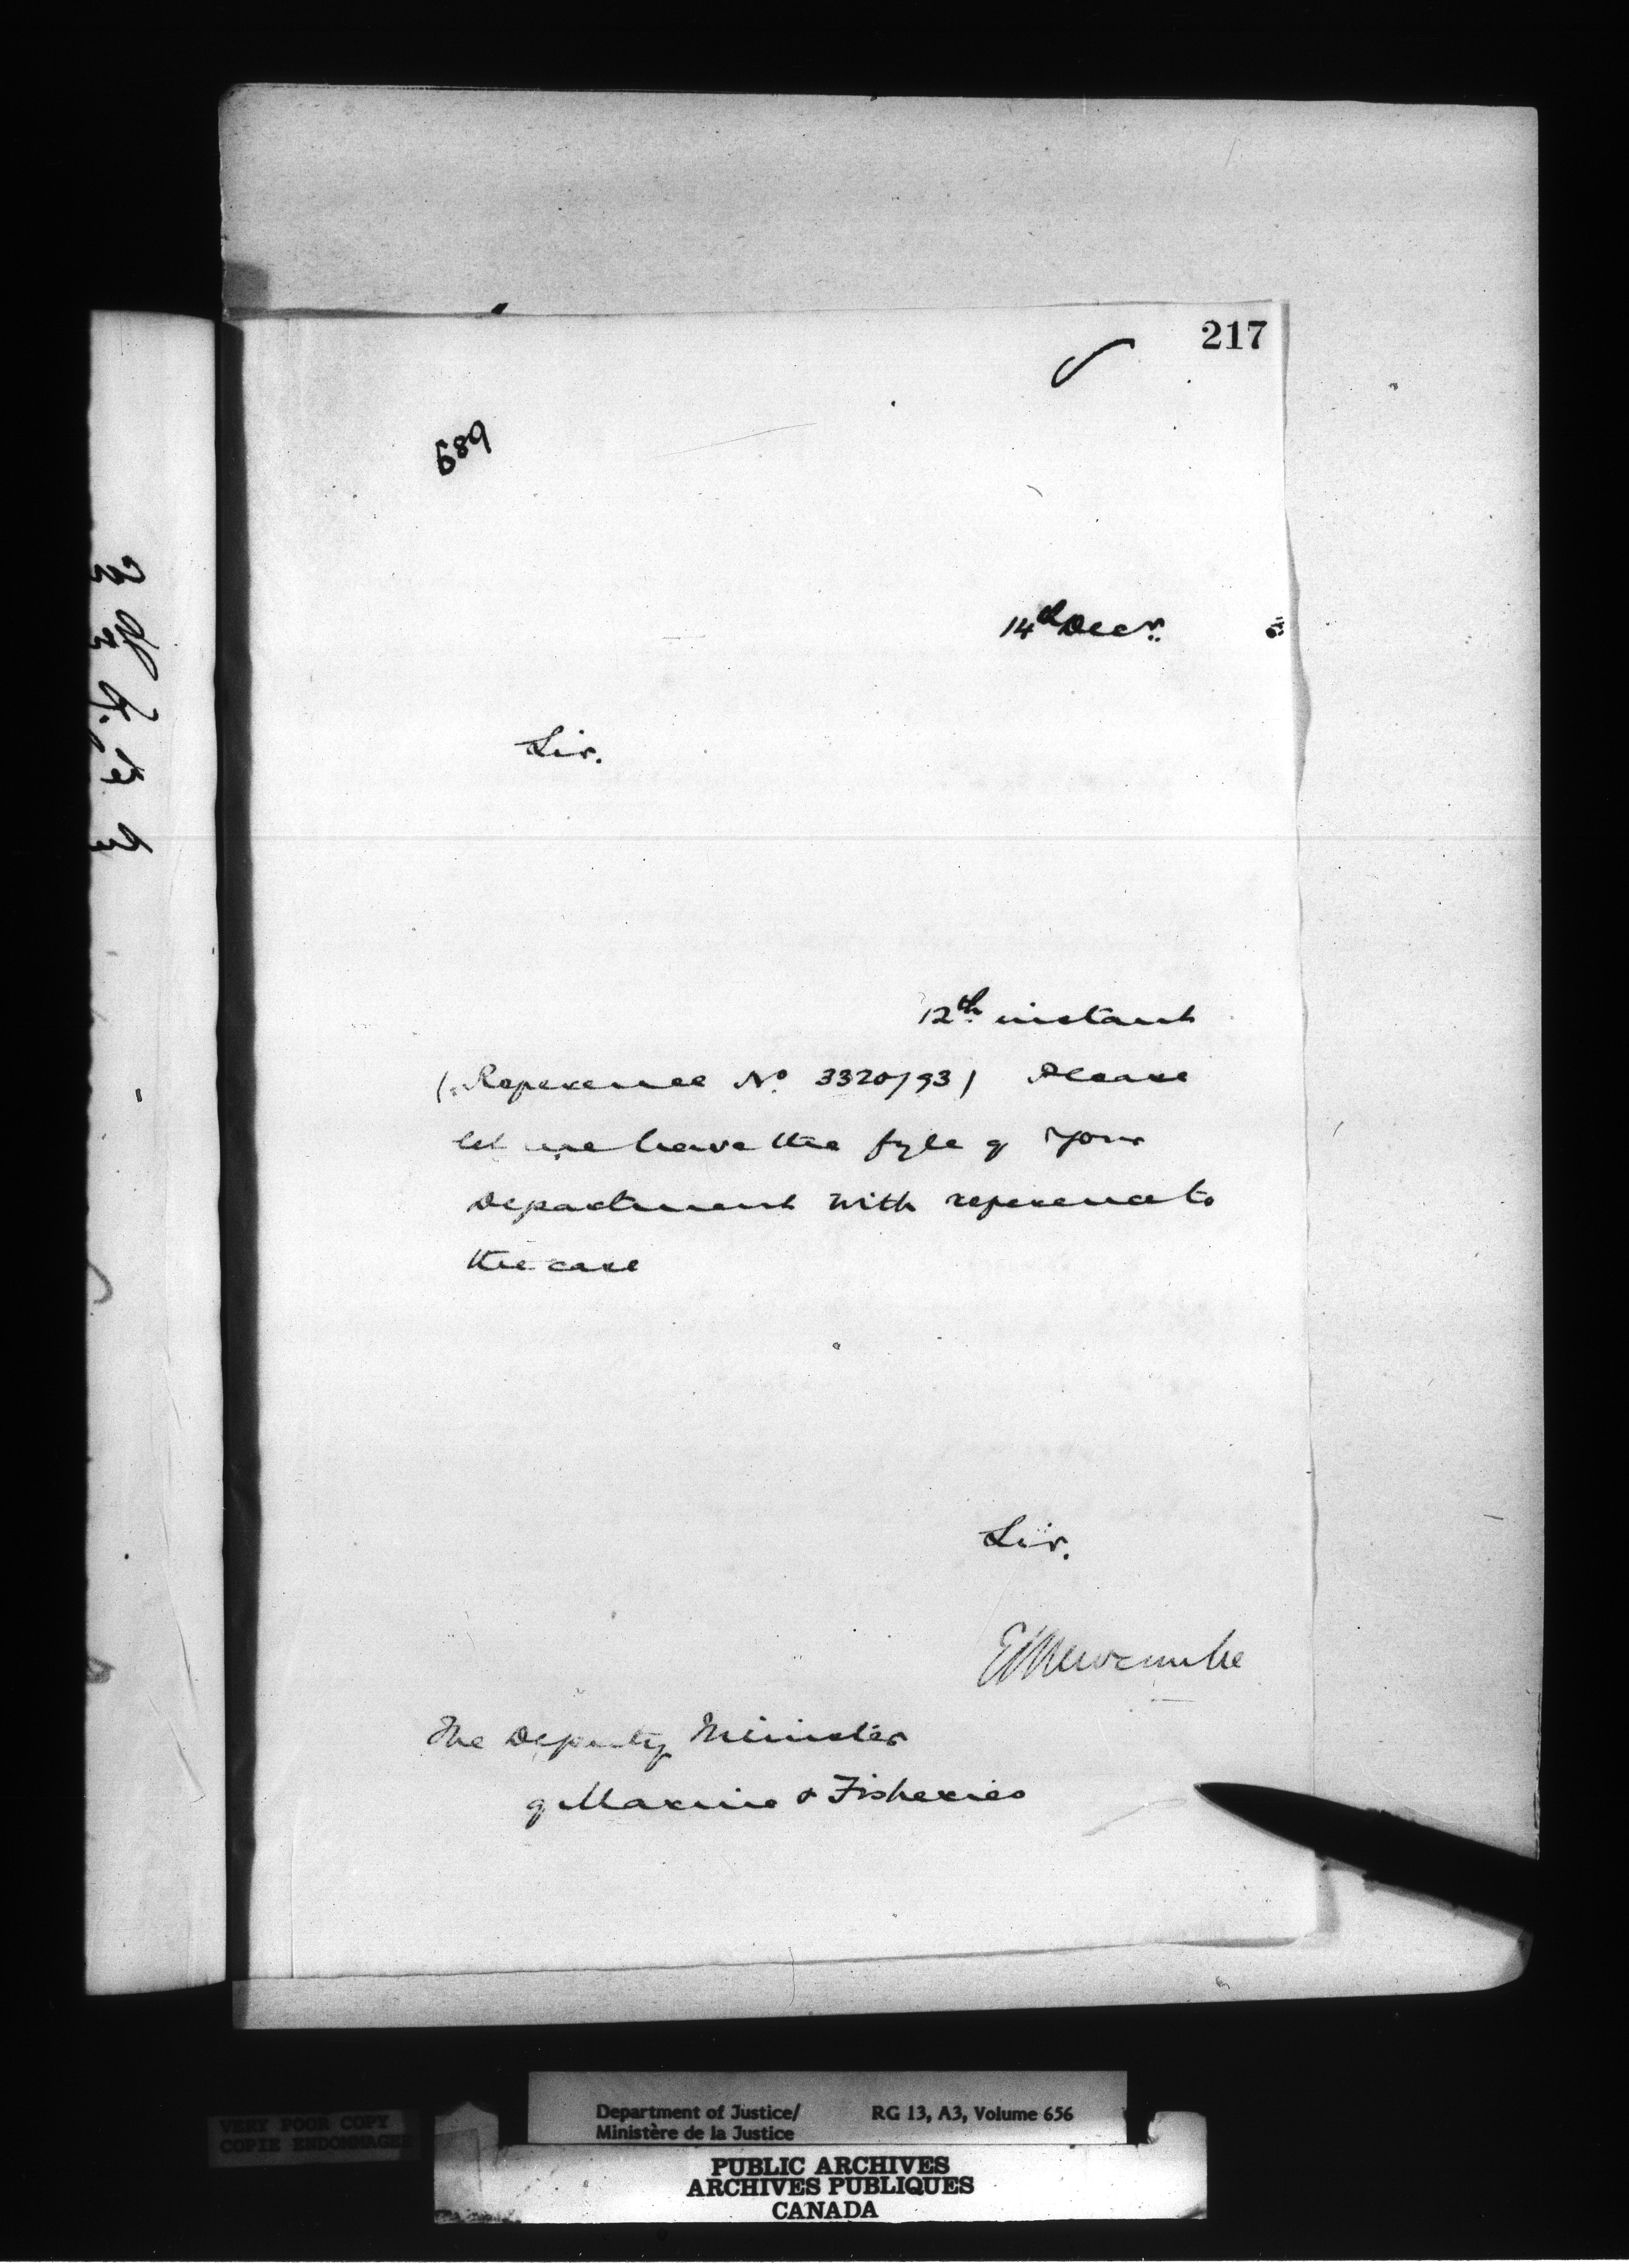 217
689
14th Decr.
Sir.
12th instant
(Reference No 3320/93) Please
let me have the fyle of your
Department with reference to
the case
Sir.
E L Newcombe
The Deputy Minister
of Marine & Fisheries
VERY POOR COPY
COPIE ENDOMMAGEE
Department of Justice/ RG 13, A3, Volume 656
Ministère de la Justice
PUBLIC ARCHIVES
ARCHIVES PUBLIQUES
CANADA